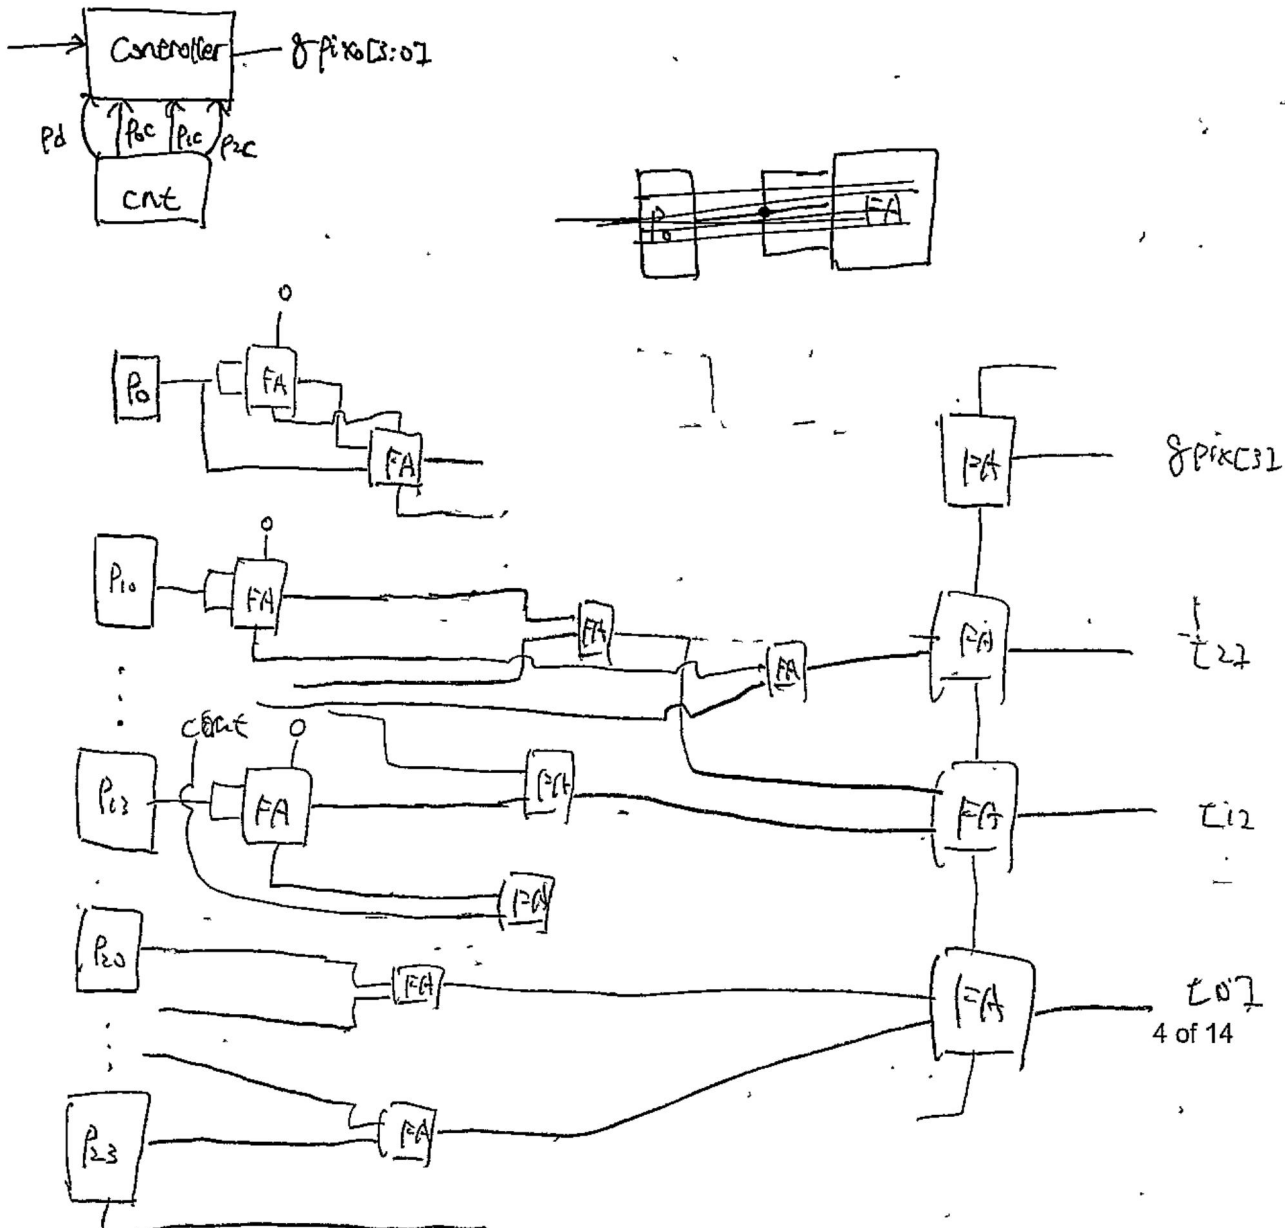 Controller
gpixo[3:0]
Pd
P0c
P1c
P2c
cnt
P0
FA
0
P0
FA
FA
FA
gpix[3]
0
P10
FA
FA
FA
FA
[2]
cout
0
P13
FA
FA
FA
[1]
FA
P20
FA
FA
[0]
4 of 14
P23
FA